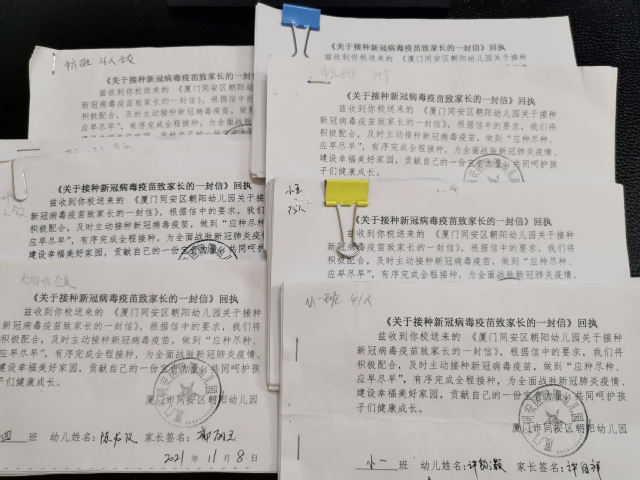 36人全交
《关于接种新冠病毒疫苗致家长的一封信》回执
兹收到你校送来的《厦门同安区朝阳幼儿园关于
接种新冠病毒疫苗致家长的一封信》，根据信中的要求，我们将
积极配合，及时主动接种疫苗，做到“应种尽种、
应早尽早”，有序完成全程接种，为全面战胜新冠
《关于接种新冠病毒疫苗致家长的一封信》回执
兹收到你校送来的《厦门同安区朝阳幼儿园关于
《关于接种新冠病毒疫苗致家长的一封信》回执
兹收到你校送来的《厦门同安区朝阳幼儿园关于
接种新冠病毒疫苗致家长的一封信》，根据信中的要求，我们将
积极配合，及时主动接种疫苗，做到“应种尽种、
应早尽早”，有序完成全程接种，为全面战胜新冠肺炎疫情、
建设幸福美好家园，贡献自己的一份 共同呵护孩
子们健康成长。
《关于接种新冠病毒疫苗致家长的一封信》回执
兹收到你校送来的《厦门同安区朝阳幼儿园关于接种
新冠病毒疫苗致家长的一封信》，根据信中的要求，我们将
积极配合，及时主动接种疫苗，做到“应种尽种、
应早尽早”，有序完成全程接种，为全面战胜新冠肺炎疫情
建设幸福美好家园，贡献自己的一份 共同呵
35人
《关于接种新冠病毒疫苗致家长的一封信》回执
兹收到你校送来的《厦门同安区朝阳幼儿园关于
接种新冠病毒疫苗致家长的一封信》，根据信中的要求，我们将
积极配合，及时主动接种疫苗，做到“应种尽种、
应早尽早”，有序完成全程接种，为全面战胜新冠肺炎疫情、
《关于接种新冠病毒疫苗致家长的一封信》回执
兹收到你校送来的《厦门同安区朝阳幼儿园关于
新冠病毒疫苗致家长的一封信》，根据信中的要求，我们
极配合，及时主动接种疫苗，做到“应种尽种、
早尽早”，有序完成全程接种，为全面战胜新冠肺炎疫情
建设幸福美好家园，贡献自己的一份 共同呵护
们健康成长。
厦门市同安区朝阳幼儿园
四 班 幼儿姓名： 家长签名：
2021年11月8日
小一班 41人
《关于接种新冠病毒疫苗致家长的一封信》回执
兹收到你校送来的《厦门同安区朝阳幼儿园关于
接种新冠病毒疫苗致家长的一封信》，根据信中的要求，我们将
积极配合，及时主动接种疫苗，做到“应种尽种、
应早尽早”，有序完成全程接种，为全面战胜新冠肺炎疫情、
建设幸福美好家园，贡献自己的一份 共同呵护孩
子们健康成长。
厦门市同安区朝阳幼儿园
小二 班 幼儿姓名： 家长签名：